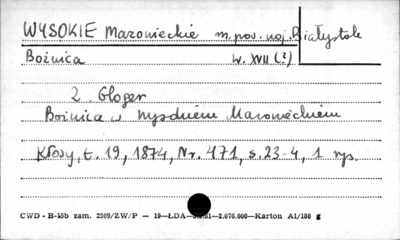 WYSOKIE Mazowieckie m. pow. woj. Białystok
Bożnica w. XVII (?)
Z. Gloger
Bożnica w Wysokiem Mazowieckiem
Kłosy, t. 19, 1874, Nr. 471, s. 23-4, 1 ryc.
CWD - B-15b zam. 2909/ZW/P — 19—ŁDA— 2.076.000—Karton A1/180 g